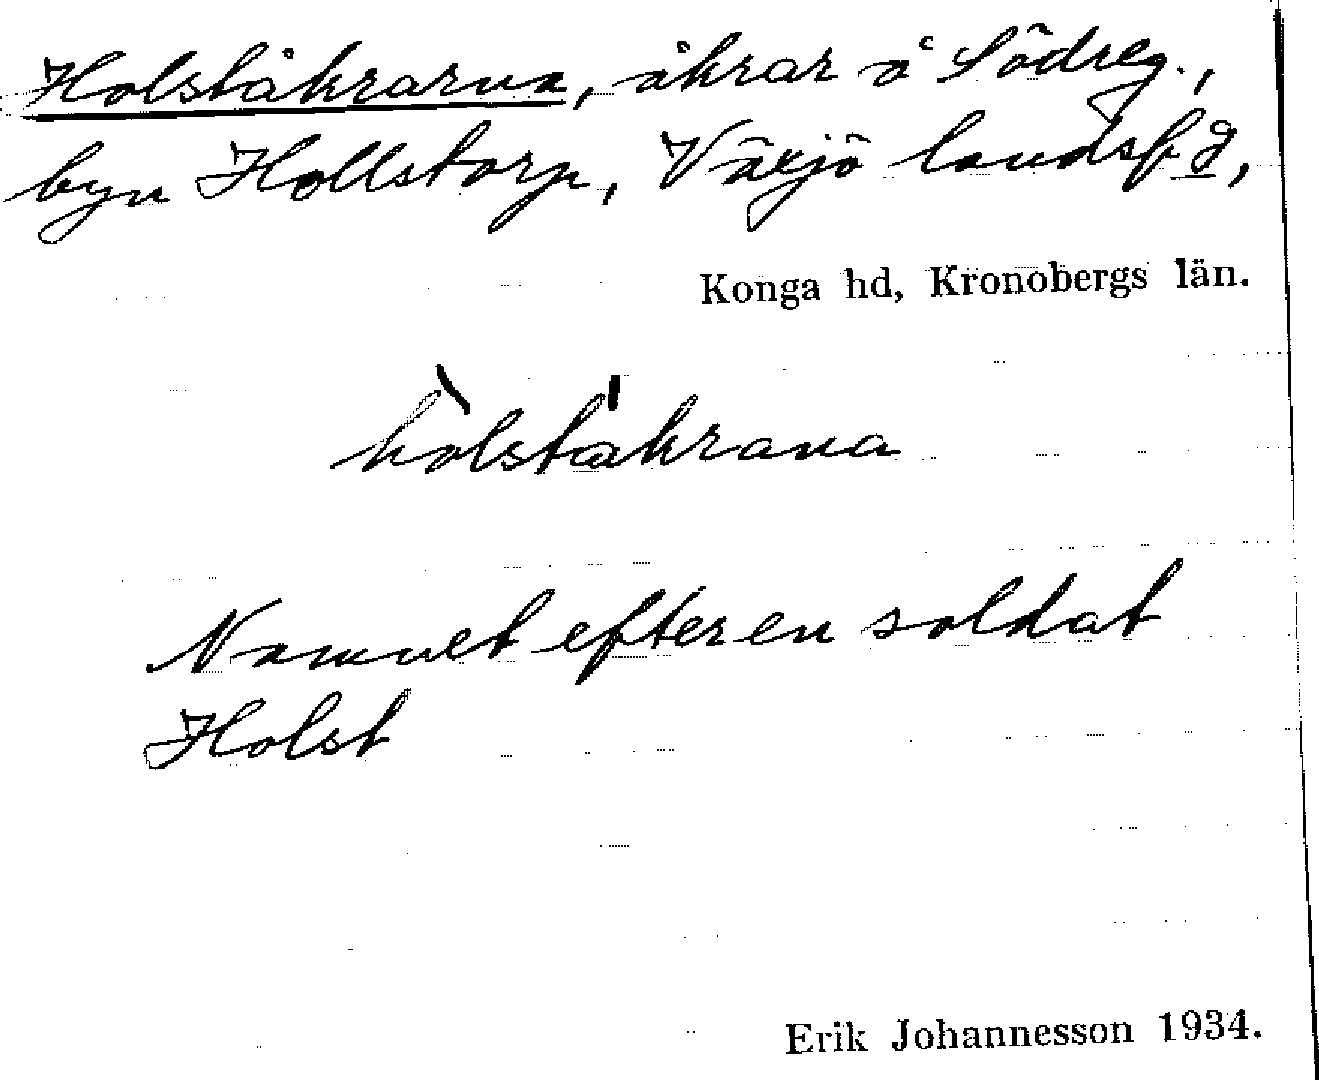 Holståkrarna, åkrar å Södreg.,
byn Hollstorp, Växjö landsf d,
Konga hd, Kronobergs län.
hòlstå'krana
Namnet efter en soldat
Holst
Erik Johannesson 1934.